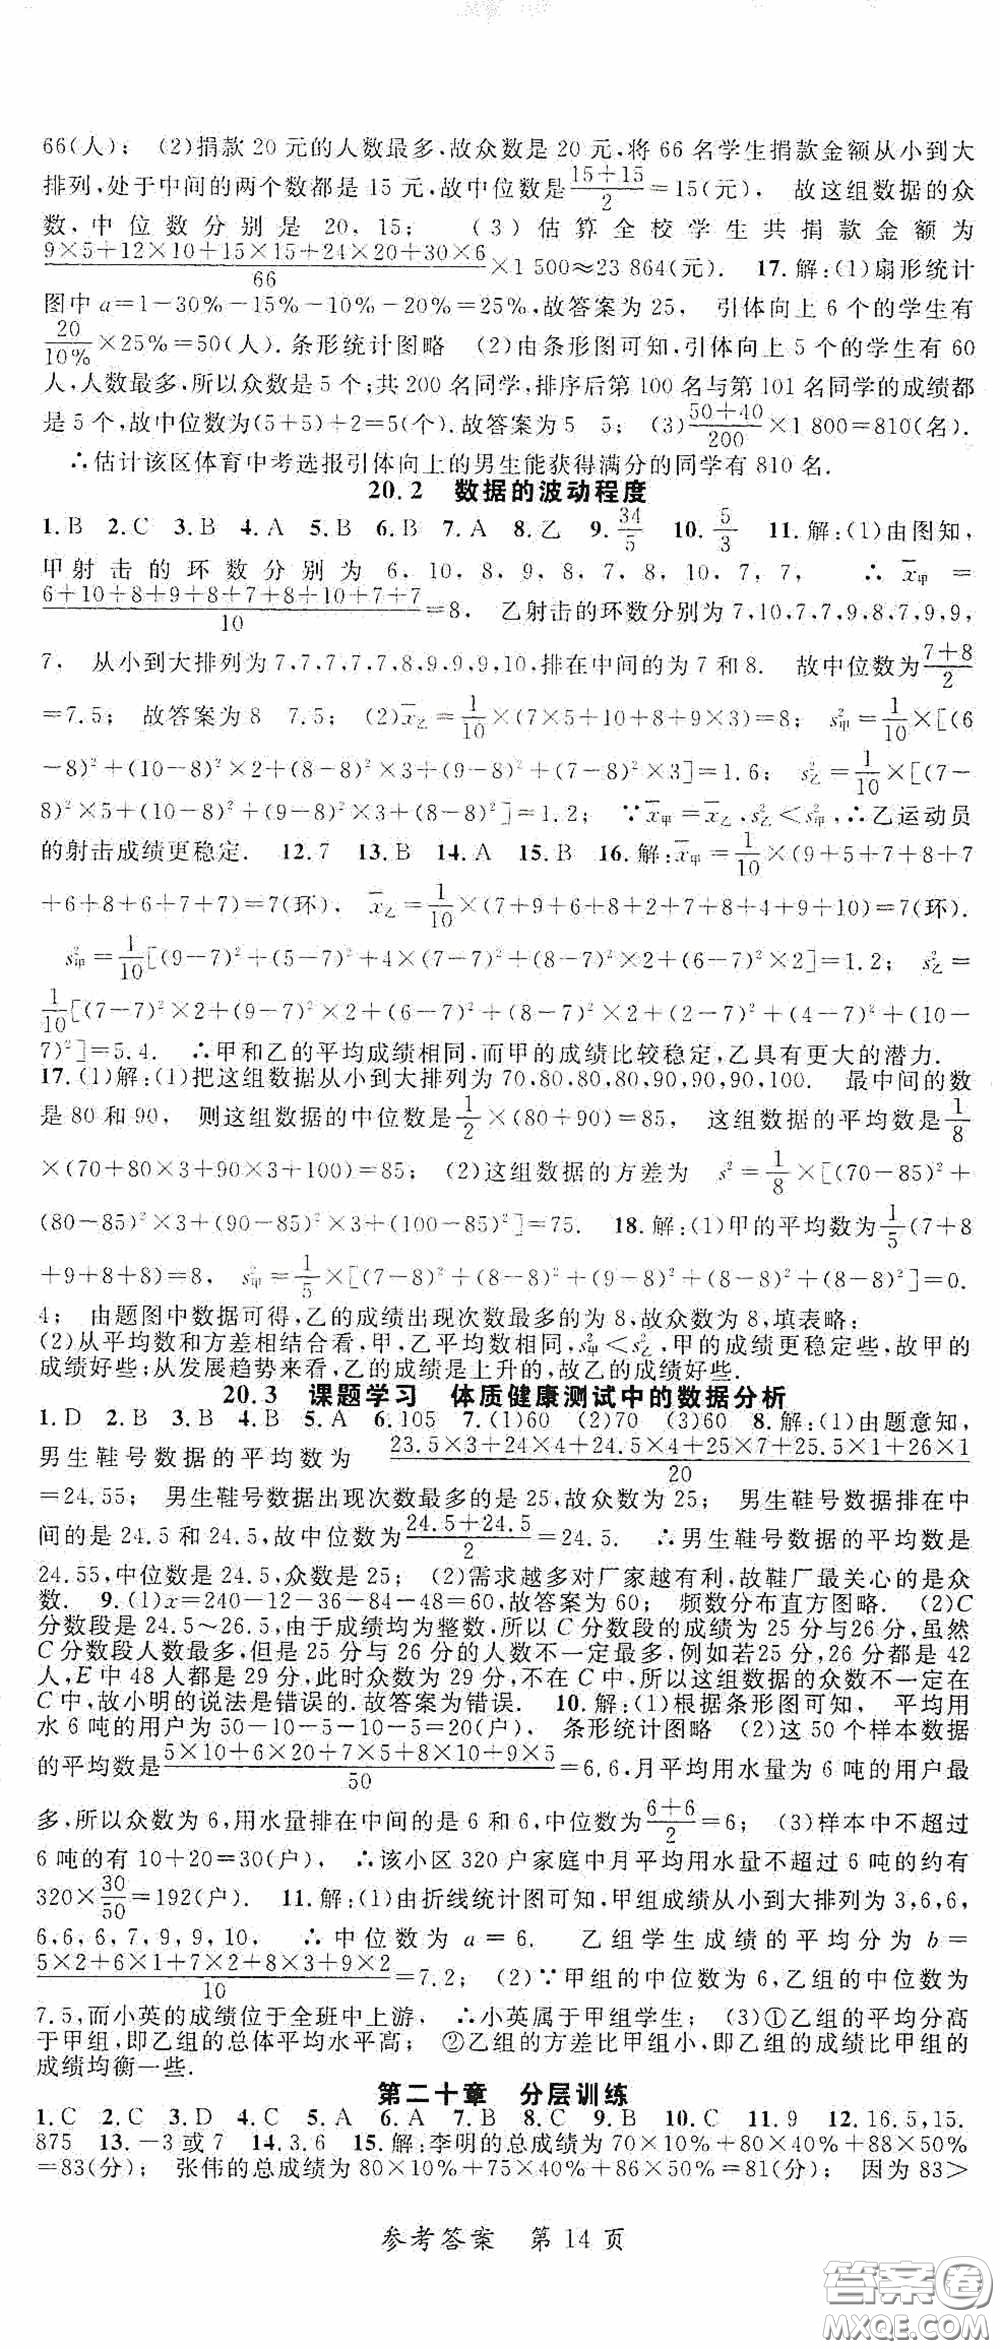 66(人); (2)捐款 20 元的人数最多,故众数是 20 元,将 66 名学生捐款金额从小到大
排列,处于中间的两个数都是 15 元,故中位数是\frac{15+15}{2}=15(元), 故这组数据的众
数、中位数分别是 20, 15; (3)估算全校学生共捐款金额为
\frac{9×5+12×10+15×15+24×20+30×6}{66}×1 500≈23 864(元). 17.解:(1)扇形统计
图中 a=1-30%-15%-10%-20%=25%,故答案为 25, 引体向上 6 个的学生有
\frac{20}{10%}×25%=50(人).条形统计图略 (2)由条形图可知,引体向上 5 个的学生有 60
人,人数最多,所以众数是 5 个;共 200 名同学,排序后第 100 名与第 101 名同学的成绩都
是 5 个,故中位数为(5+5)÷2=5(个).故答案为 5 5; (3)\frac{50+40}{200}×1 800=810(名).
∴估计该区体育中考选报引体向上的男生能获得满分的同学有 810 名.
20.2 数据的波动程度
1.B 2.C 3.B 4.A 5.B 6.B 7.A 8.乙 9.\frac{34}{5} 10.\frac{5}{3} 11.解:(1)由图知,
甲射击的环数分别为 6, 10, 8, 9, 8, 7, 8, 10, 7, 7, ∴\overline{x}甲=
\frac{6+10+8+9+8+7+8+10+7+7}{10}=8, 乙射击的环数分别为 7,10,7,7,9,8,7,9,9,
7, 从小到大排列为 7,7,7,7,7,8,9,9,9,10,排在中间的为 7 和 8. 故中位数为\frac{7+8}{2}
=7.5; 故答案为 8 7.5; (2)\overline{x}乙=\frac{1}{10}×(7×5+10+8+9×3)=8; s²甲=\frac{1}{10}×[(6
-8)²+(10-8)²×2+(8-8)²×3+(9-8)²+(7-8)²×3]=1.6; s²乙=\frac{1}{10}×[(7-
8)²×5+(10-8)²+(9-8)²×3+(8-8)²]=1.2; ∵\overline{x}甲=\overline{x}乙,s²乙<s²甲,∴乙运动员
的射击成绩更稳定. 12.7 13.B 14.A 15.B 16.解:\overline{x}甲=\frac{1}{10}×(9+5+7+8+7
+6+8+6+7+7)=7(环), \overline{x}乙=\frac{1}{10}×(7+9+6+8+2+7+8+4+9+10)=7(环).
s²甲=\frac{1}{10}[(9-7)²+(5-7)²+4×(7-7)²+(8-7)²×2+(6-7)²×2]=1.2; s²乙=
\frac{1}{10}[(7-7)²×2+(9-7)²×2+(6-7)²+(8-7)²×2+(2-7)²+(4-7)²+(10-
7)²]=5.4. ∴甲和乙的平均成绩相同,而甲的成绩比较稳定,乙具有更大的潜力.
17.(1)解:(1)把这组数据从小到大排列为 70,80,80,80,90,90,90,100. 最中间的数
是 80 和 90, 则这组数据的中位数是\frac{1}{2}×(80+90)=85, 这组数据的平均数是\frac{1}{8}
×(70+80×3+90×3+100)=85; (2)这组数据的方差为 s²=\frac{1}{8}×[(70-85)²+
(80-85)²×3+(90-85)²×3+(100-85)²]=75. 18.解:(1)甲的平均数为\frac{1}{5}(7+8
+9+8+8)=8, s²甲=\frac{1}{5}×[(7-8)²+(8-8)²+(9-8)²+(8-8)²+(8-8)²]=0.
4; 由题图中数据可得,乙的成绩出现次数最多的为 8,故众数为 8,填表略;
(2)从平均数和方差相结合看,甲,乙平均数相同,s²甲<s²乙,甲的成绩更稳定些,故甲的
成绩好些;从发展趋势来看,乙的成绩是上升的,故乙的成绩好些.
20.3 课题学习 体质健康测试中的数据分析
1.D 2.B 3.B 4.B 5.A 6.105 7.(1)60 (2)70 (3)60 8.解:(1)由题意知,
男生鞋号数据的平均数为 \frac{23.5×3+24×4+24.5×4+25×7+25.5×1+26×1}{20}
=24.55; 男生鞋号数据出现次数最多的是 25,故众数为 25; 男生鞋号数据排在中
间的是 24.5 和 24.5,故中位数为\frac{24.5+24.5}{2}=24.5. ∴男生鞋号数据的平均数是
24.55,中位数是 24.5,众数是 25; (2)需求越多对厂家越有利,故鞋厂最关心的是众
数. 9.(1)x=240-12-36-84-48=60,故答案为 60; 频数分布直方图略. (2)C
分数段是 24.5~26.5,由于成绩均为整数,所以 C 分数段的成绩为 25 分与 26 分,虽然
C 分数段人数最多,但是 25 分与 26 分的人数不一定最多,例如若25 分,26 分都是 42
人,E 中 48 人都是 29 分,此时众数为 29 分,不在 C 中,所以这组数据的众数不一定在
C 中,故小明的说法是错误的.故答案为错误. 10.解:(1)根据条形图可知, 平均用
水 6 吨的用户为 50-10-5-10-5=20(户), 条形统计图略 (2)这 50 个样本数据
的平均数是\frac{5×10+6×20+7×5+8×10+9×5}{50}=6.6,月平均用水量为 6 吨的用户最
多,所以众数为 6,用水量排在中间的是 6 和 6,中位数为\frac{6+6}{2}=6; (3)样本中不超过
6 吨的有 10+20=30(户), ∴该小区 320 户家庭中月平均用水量不超过 6 吨的约有
320×\frac{30}{50}=192(户). 11.解:(1)由折线统计图可知,甲组成绩从小到大排列为 3,6,6,
6,6,6,7,9,9,10, ∴中位数为 a=6. 乙组学生成绩的平均分为 b=
\frac{5×2+6×1+7×2+8×3+9×2}{10}=7.2; (2)∵甲组的中位数为 6,乙组的中位数为
7.5,而小英的成绩位于全班中上游, ∴小英属于甲组学生; (3)①乙组的平均分高
于甲组,即乙组的总体平均水平高; ②乙组的方差比甲组小,即乙组的成绩比甲组的
成绩均衡一些.
第二十章 分层训练
1.C 2.B 3.D 4.C 5.A 6.A 7.B 8.C 9.B 10.C 11.9 12.16.5,15.
875 13.-3 或 7 14.3.6 15.解:李明的总成绩为 70×10%+80×40%+88×50%
=83(分); 张伟的总成绩为 80×10%+75×40%+86×50%=81(分); 因为 83>
参考答案 第 14 页
答案卷
MXQE.COM